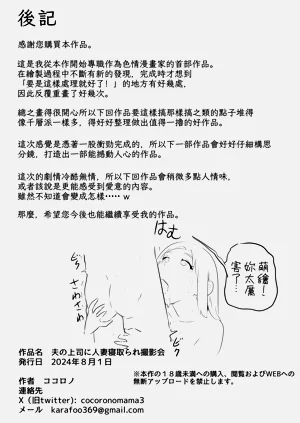 後記
感謝您購買本作品。
這是我從本作開始專職作為色情漫畫家的首部作品。
在繪製過程中不斷有新的發現，完成時才想到
「要是這樣處理就好了！」的地方有好幾處，
因此反覆重畫了好幾次。
總之畫得很開心所以下回作品要這樣搞那樣搞之類的點子堆得
像千層派一樣多，得好好整理做出值得一擼的好作品。
這次感覺是憑著一股衝勁完成的，所以下一部作品會好好仔細構思
分鏡，打造出一部能撼動人心的作品。
這次的劇情冷酷無情，所以下回作品會稍微多點人情味，
或者該說是更能感受到愛意的內容。
雖然不知道會變成怎樣‥‥‥ｗ
那麼，希望您今後也能繼續享受我的作品。
はむっ
萌繪！
妳太厲
害了…
さわさわ
作品名　夫の上司に人妻寝取られ撮影会
発行日　２０２４年８月１日
※本作の１８歳未満への購入、閲覧およびWEBへの
無断アップロードを禁止します。
作者　ココロノ
連絡先
X（旧twitter）：cocoronomama3
メール　karafoo369@gmail.com